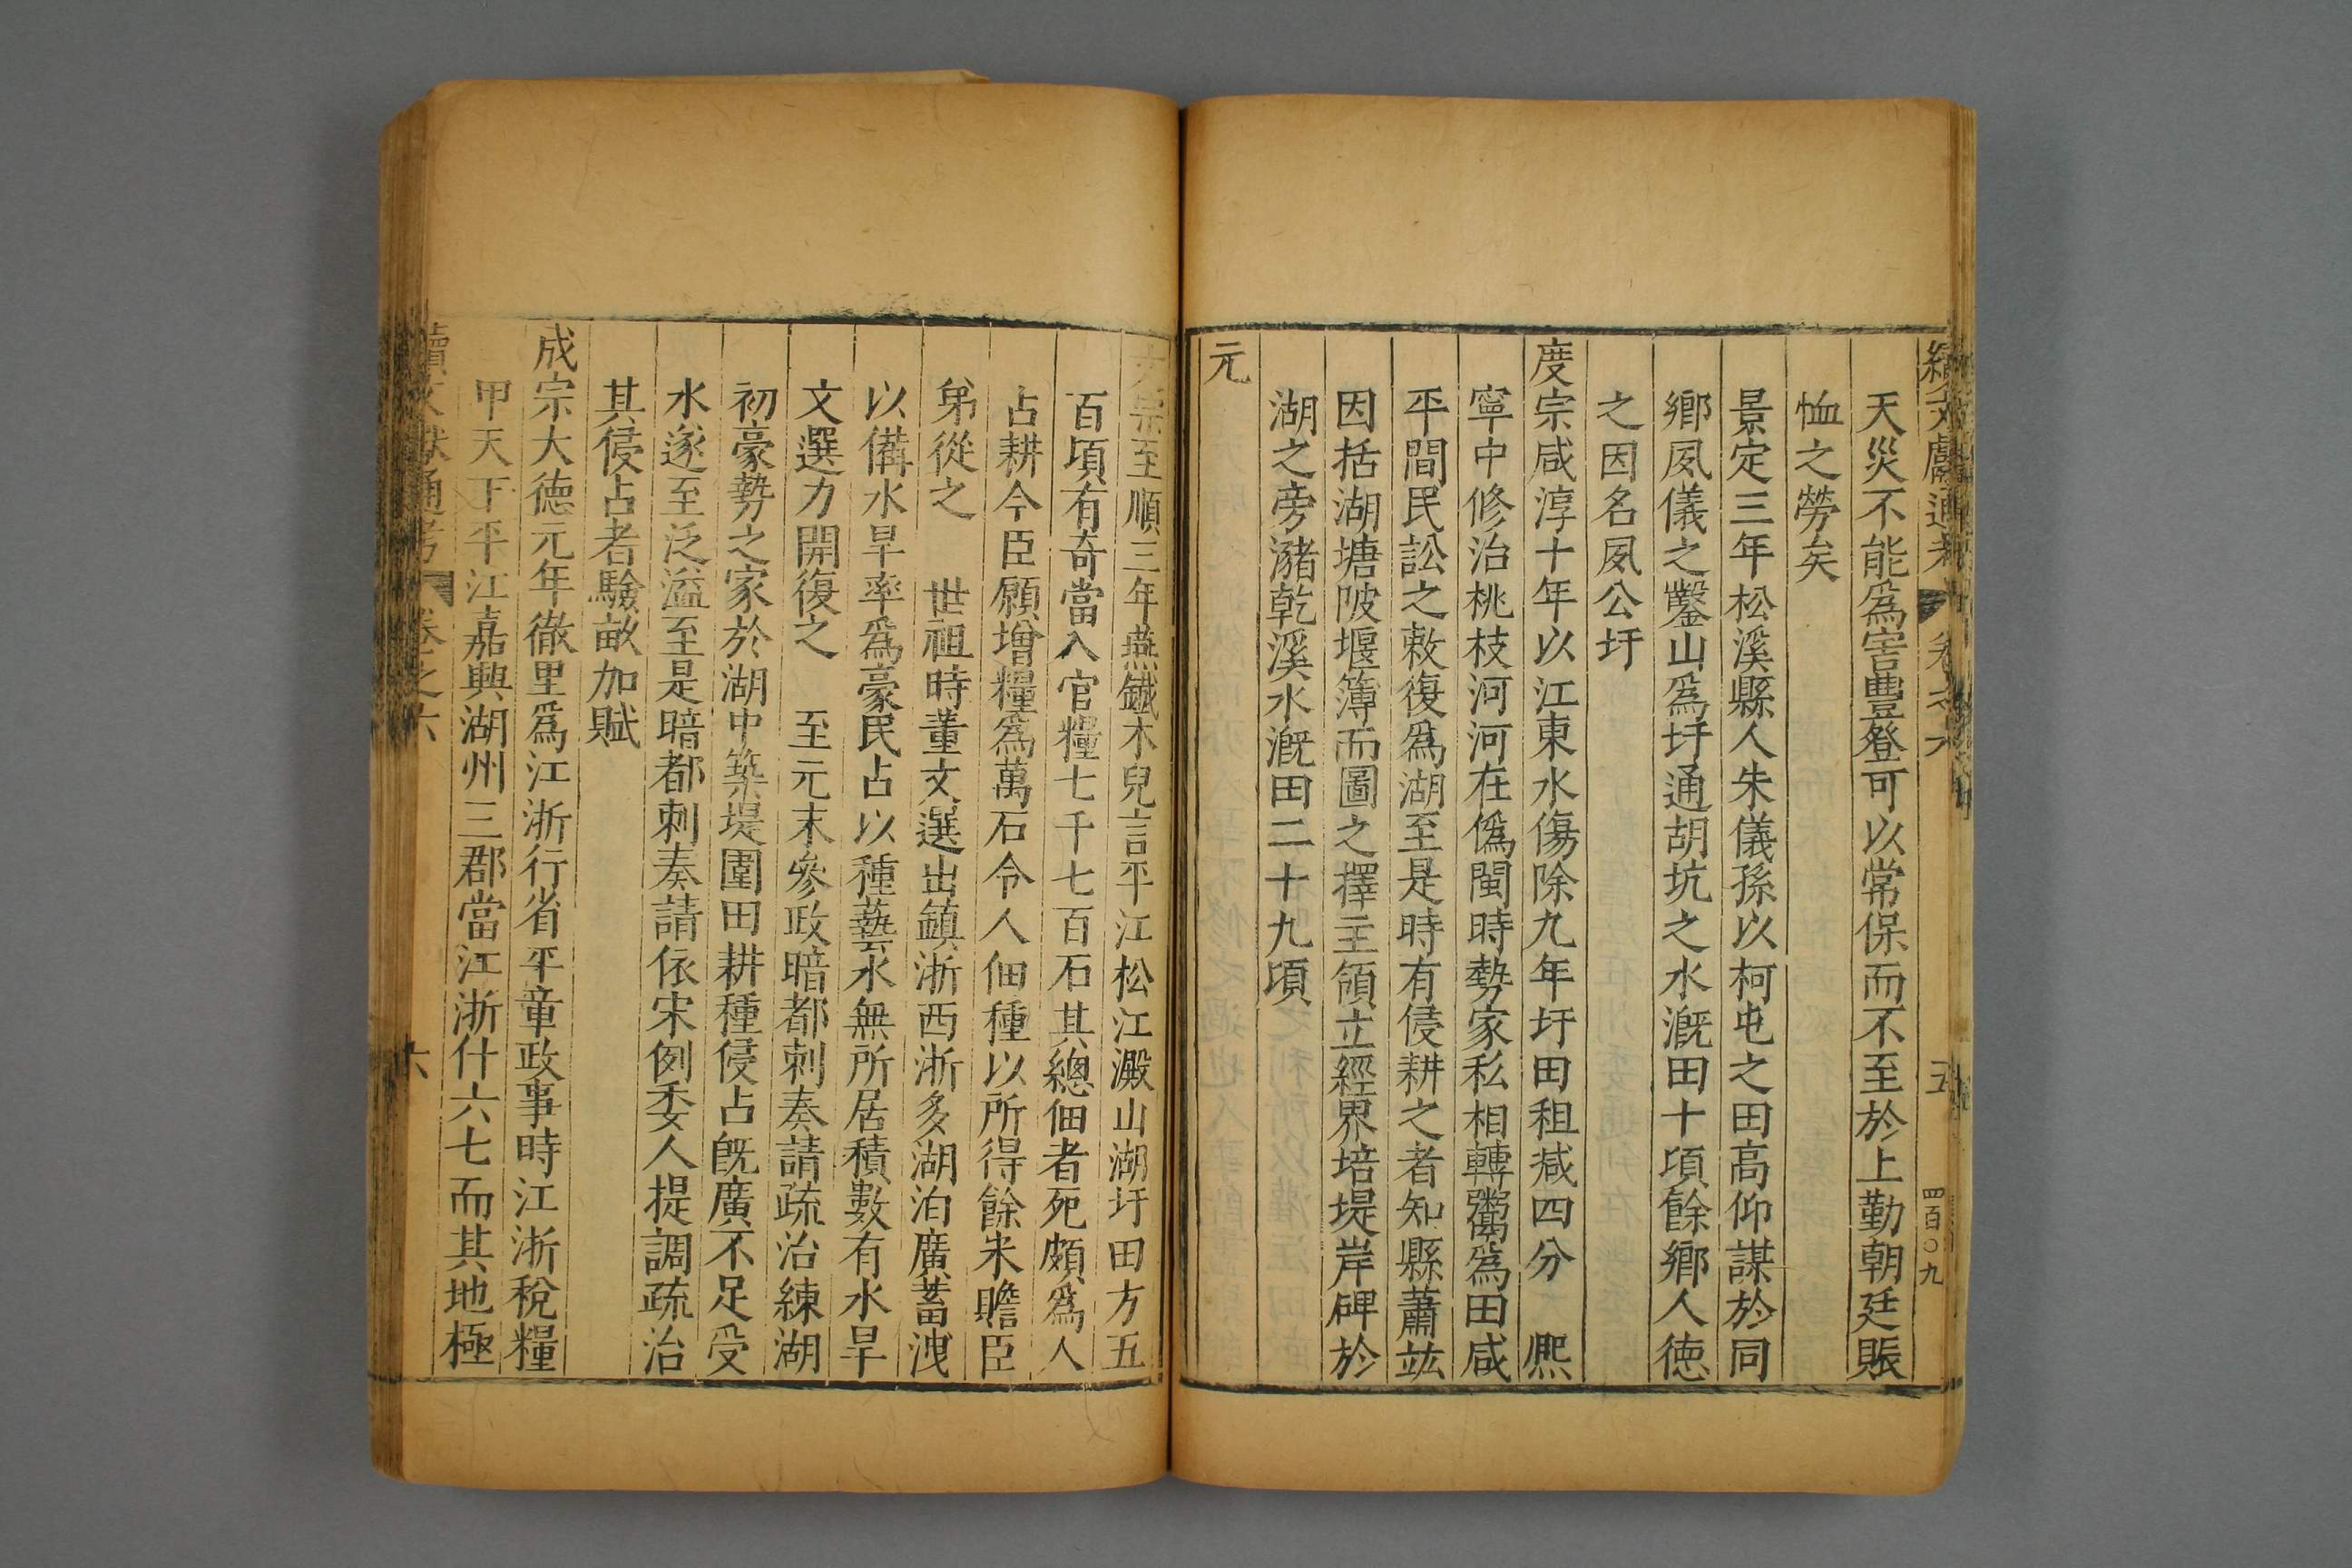 續文獻通考 卷之六 五 四百〇九
天災不能爲害豊登可以常保而不至於上勤朝廷賑
恤之勞矣
景定三年松溪縣人朱儀孫以柯屯之田高仰謀於同
鄉夙儀之鑿山爲圩通胡坑之水漑田十頃餘鄉人徳
之因名夙公圩
度宗咸淳十年以江東水傷除九年圩田租减四分 熈
寧中修治桃枝河河在僞閩時勢家私相轉鬻爲田咸
平間民訟之敕復爲湖至是時有侵耕之者知縣蕭竑
因括湖塘陂堰簿而圖之擇主領立經界培堤岸碑於
湖之旁瀦乾溪水漑田二十九頃
元
文宗至順三年燕鐵木兒言平江松江澱山湖圩田方五
百頃有奇當入官糧七千七百石其總佃者死頗爲人
占耕今臣願增糧爲萬石令人佃種以所得餘米贍臣
弟從之 世祖時董文選出鎮浙西浙多湖泊廣蓄洩
以備水旱率爲豪民占以種藝水無所居積數有水旱
文選力開復之 至元末參政暗都刺奏請疏治練湖
初豪勢之家於湖中築堤圍田耕種侵占旣廣不足受
水遂至泛溢至是暗都刺奏請依宋例委人提調疏治
其侵占者驗畝加賦
成宗大德元年徹里爲江浙行省平章政事時江浙稅糧
甲天下平江嘉興湖州三郡當江浙什六七而其地極
續文獻通考 卷之六 六